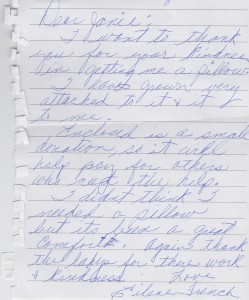 Dear Janie:
I want to thank
you for your kindness
in getting me a pillow.
I have grown very
attached to it & it
to me.
Enclosed is a small
donation so it will
help pay for others
who need the help.
I didn't think I
needed a pillow
but its been a great
comfort. Again thank
the ladys for there work
& kindness. Love
Eilene French